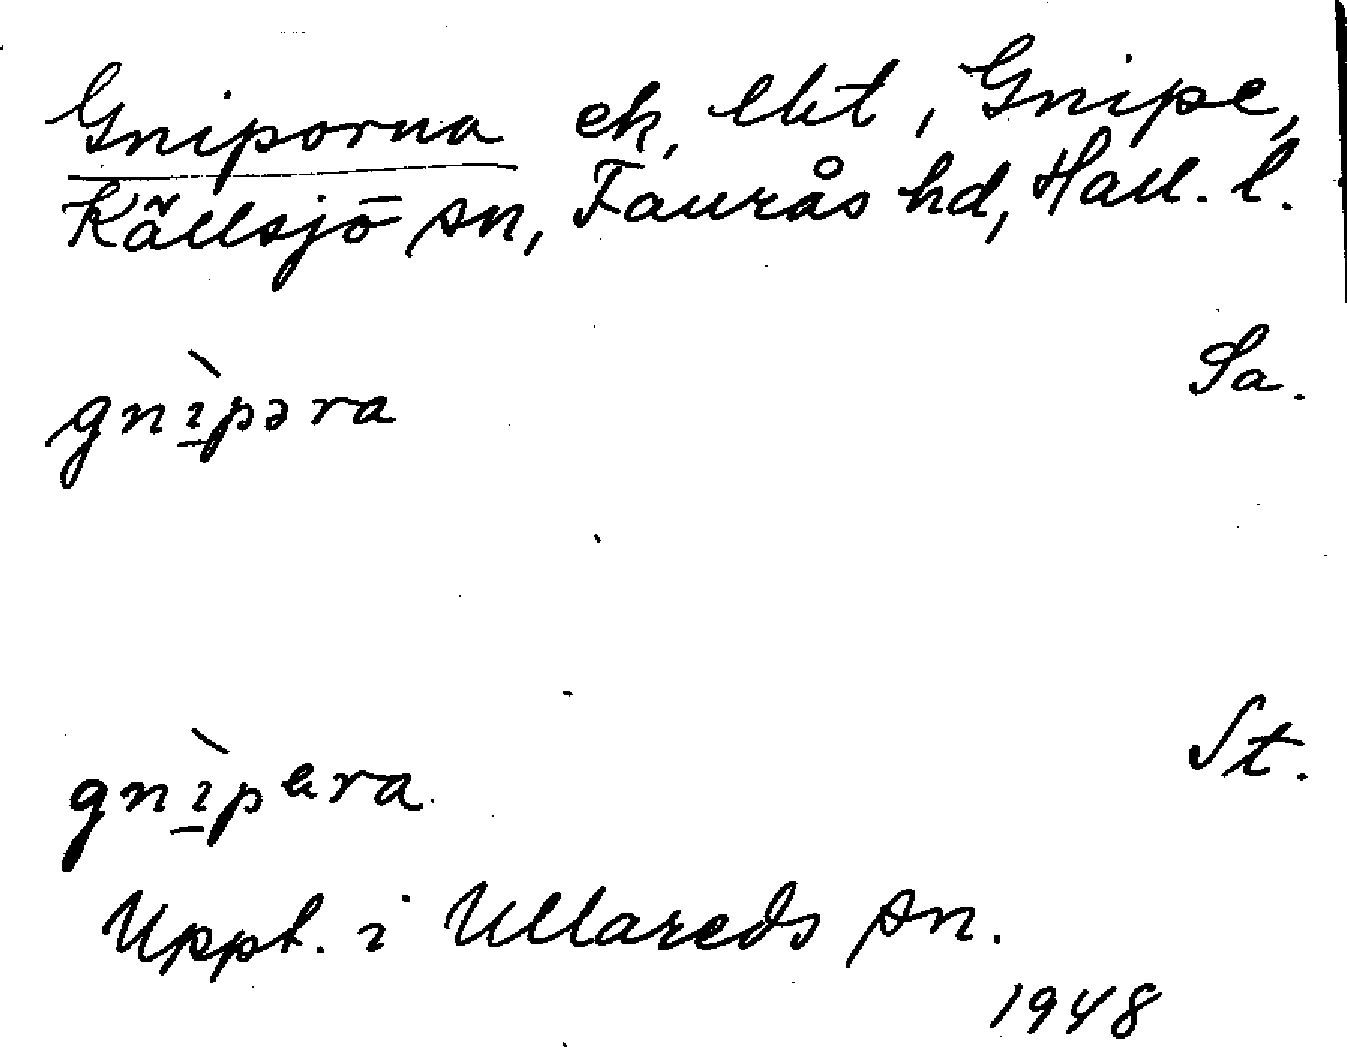 Gniporna ek, lbt, Gnipe,
Källsjö sn, Faurås hd, Hall. l.
gnı̀pəra Sa.
gnı̀pɐra St.
Uppt. i Ullareds sn.
1948